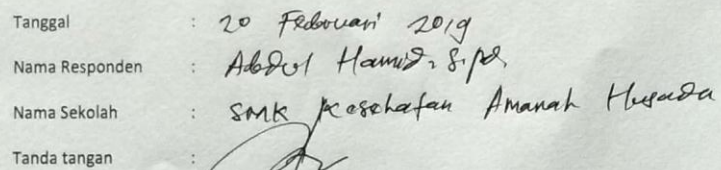 Tanggal : 20 Februari 2019
Nama Responden : Abdul Hamid, S.pd.
Nama Sekolah : SMK Kesehatan Amanah Husada
Tanda tangan :